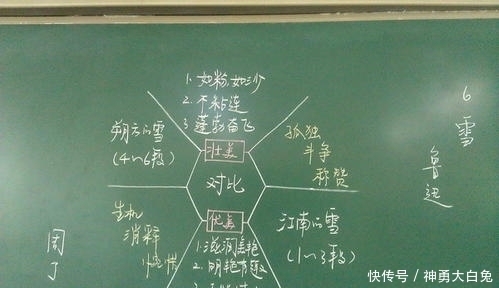 6
雪
鲁迅
1. 如粉,如沙
2. 不粘连
3 蓬勃奋飞
朔方的雪
(4~6段)
壮美
孤独
斗争
称赞
对比
生机
消释
优美
江南的雪
(1~3段)
1.滋润美艳
2.明艳有趣
快传号 / 神勇大白兔